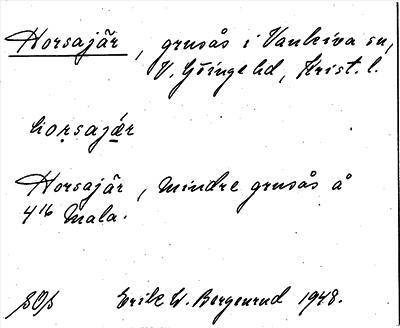 Horsajär, grusås i Vankiva sn,
V. Göinge hd, Krist. l.
horsajǽr
Horsajär, mindre grusås å
4¹⁶ Mala.
Erik W. Bergenrud 1948.